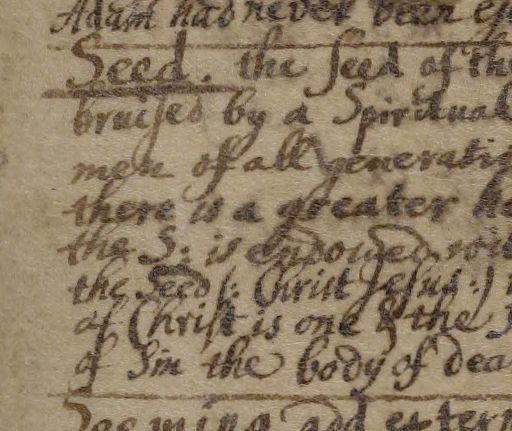 Adam had never been
Seed. the seed of the
bruised by a Spiritual
men of all
there is a greater
the S: is endowed
the Seed (: Christ Jesus :)
of Christ is one & the
of Sin the body of
Seeming add